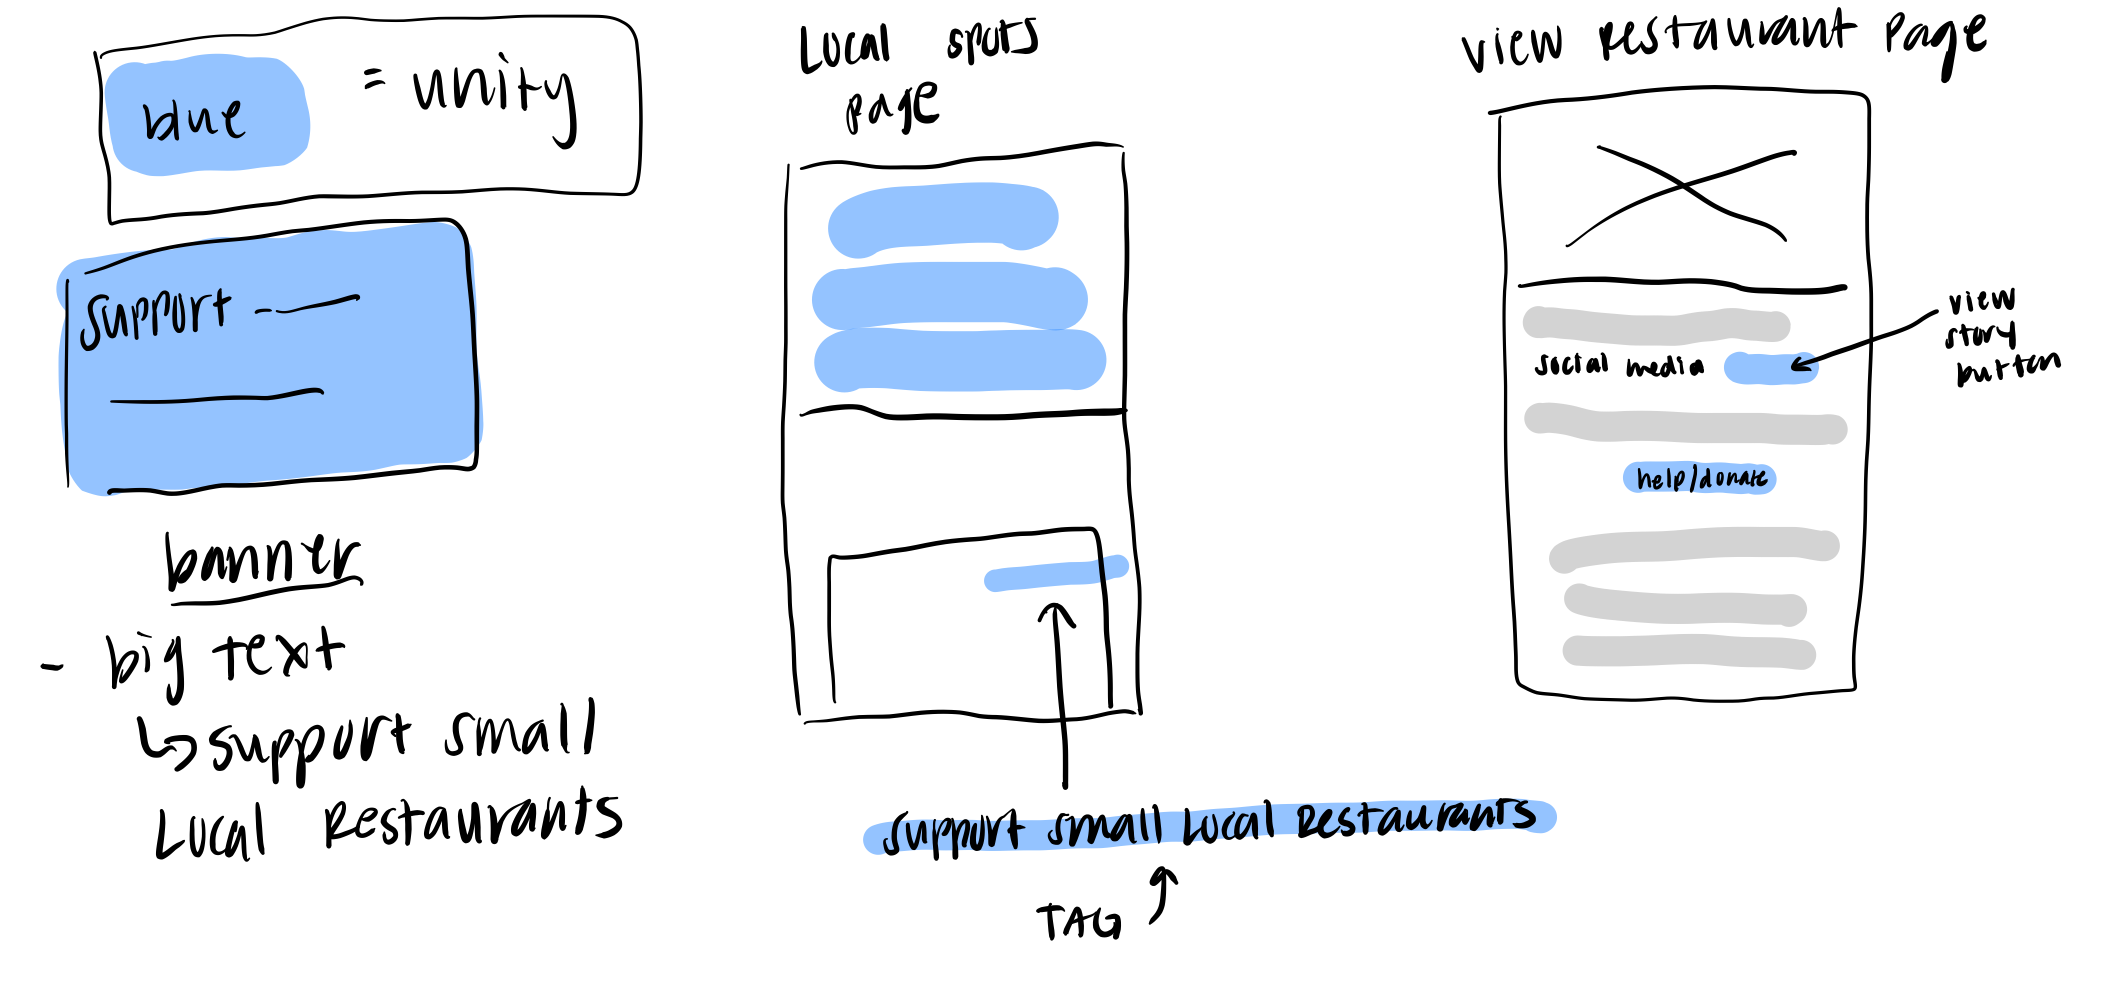 blue = unity
support
banner
- big text
↳ support small
Local Restaurants
Local spots
page
support small Local Restaurants
TAG
view Restaurant Page
social media
view
story
button
help/donate